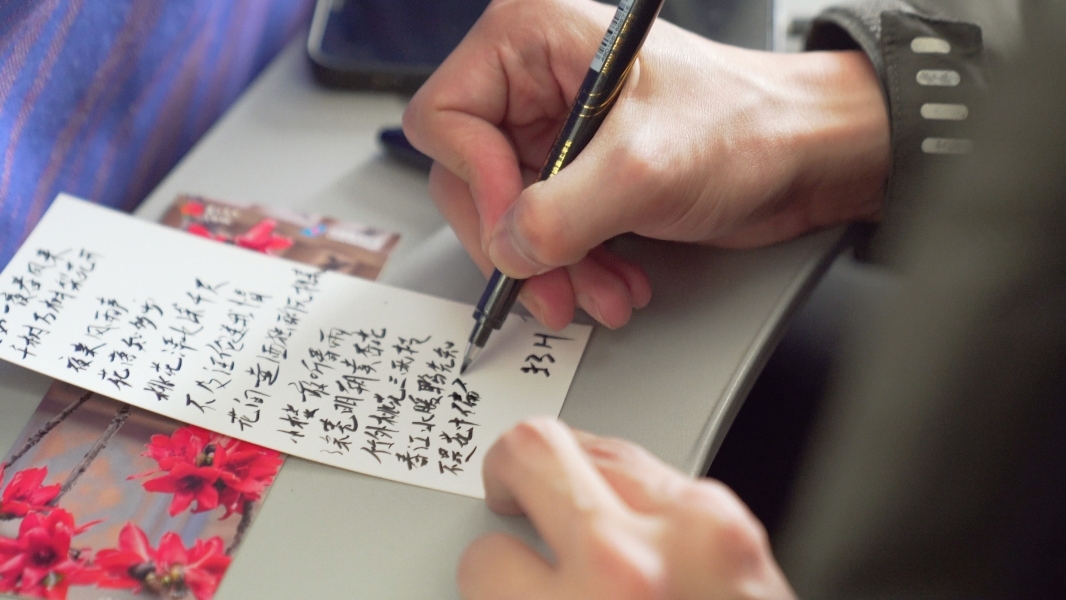 如一夜春风来
千树万树梨花开
夜来风雨声
花落知多少
桃花潭水深千尺
不及汪伦送我情
花间一壶酒独酌无相亲
小楼一夜听春雨
深巷明朝卖杏花
竹外桃花三两枝
春江水暖鸭先知
不是花中偏